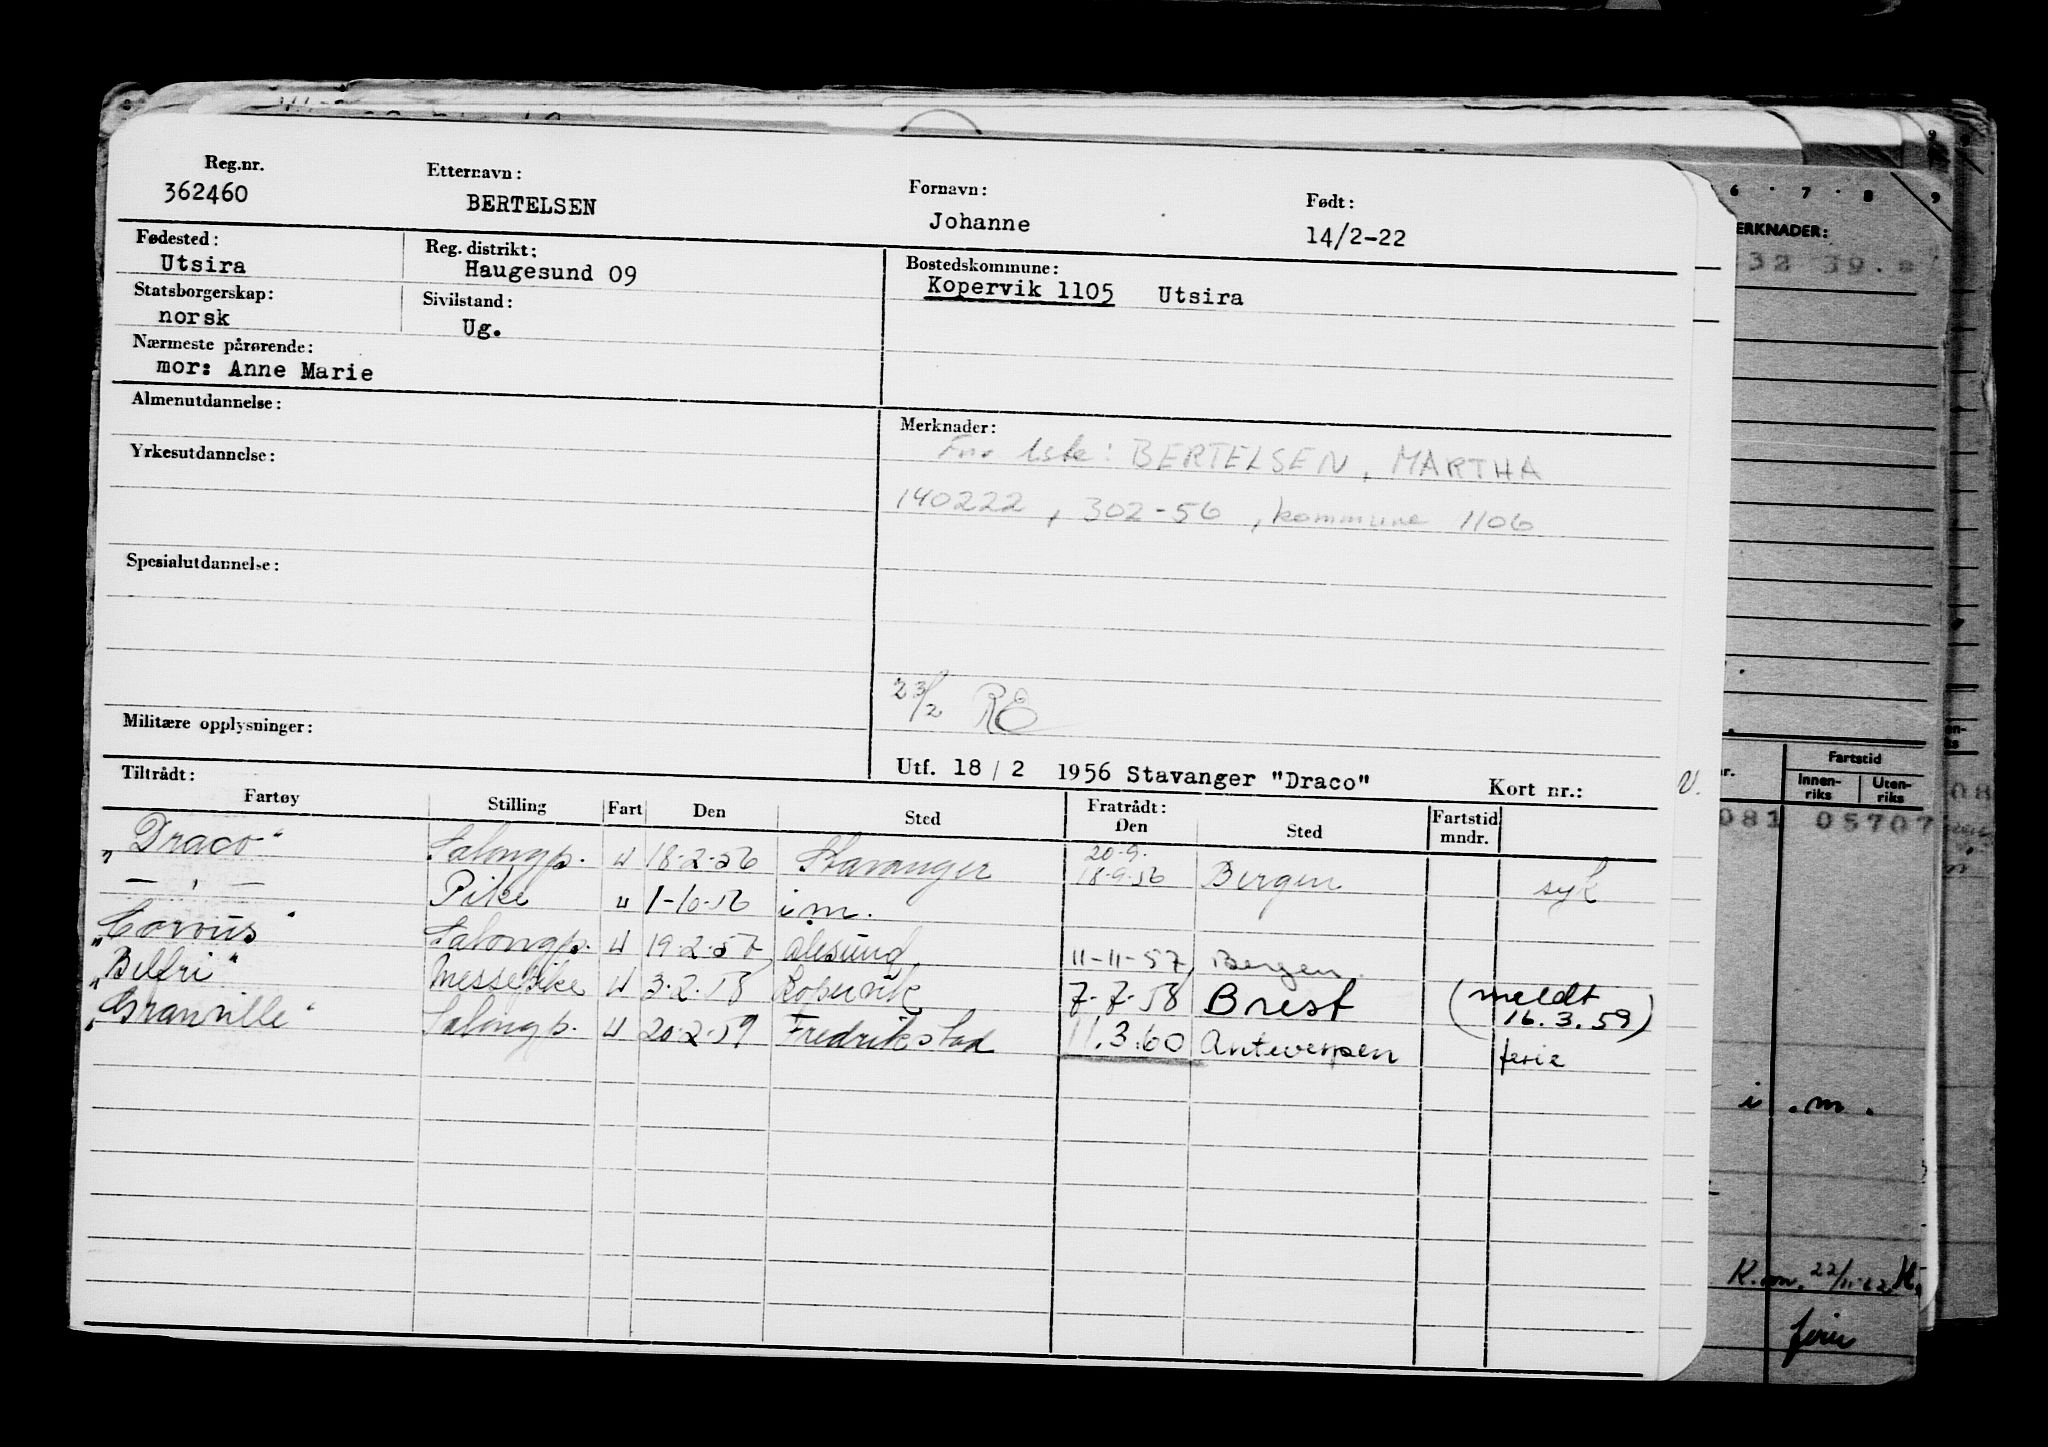 Reg.nr. Etternavn: Fornavn: Født:
362460 BERTELSEN Johanne 14/2-22
Fødested: Reg. distrikt: Bostedskommune:
Utsira Haugesund 09 Kopervik 1105 Utsira
Statsborgerskap: Sivilstand:
norsk Ug.
Nærmeste pårørende:
mor: Anne Marie
Almenutdannelse: Merknader:
liste: BERTELSEN, MARTHA
Yrkesutdannelse:
140222, 302-56, kommune 1106
Spesialutdannelse:
23/2
Militære opplysninger:
Utf. 18/2 1956 Stavanger "Draco" Kort nr.:
Tiltrådt: Fratrådt:
Fartøy Stilling Fart Den Sted Den Sted Fartstid mndr.
20-9.
„Draco“ Salongp. u 18-2-56 Stavanger 18-9-56 Bergen syk
— „ — Pike u 1-10-56 i.m.
„Corvus“ Salongp. u 19-2-57 Ålesund 11-11-57 Bergen.
„Belfri“ Messepike u 3-2-58 Kopervik 7-7-58 Brest (meldt 16.3.59)
„Granville“ Salongp. u 20-2-59 Fredrikstad 11.3.60 Antwerpen ferie
6 7 8 9
MERKNADER:
32 39.
Fartstid
Innen-riks Uten-riks
081 05707
i.m.
K.m. 22/11-62
ferie